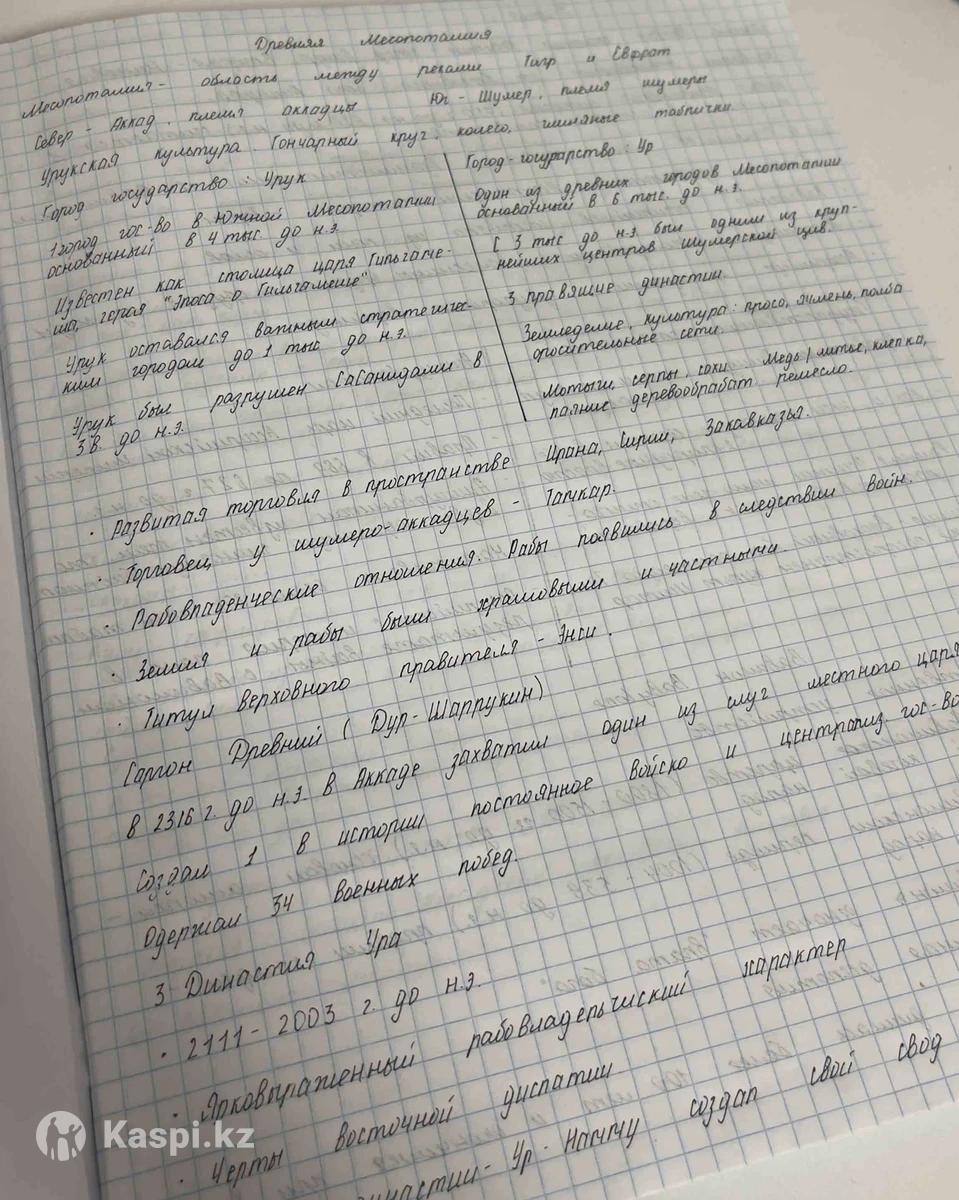 Древняя Месопотамия
Месопотамия - область между реками Тигр и Евфрат
Север - Аккад, племя аккадцы Юг - Шумер, племя шумеры
Урукская культура. Гончарный круг, колесо, глиняные таблички.
Город государство : Урук
1 город гос-во в Южной Месопотамии
основанный в 4 тыс. до н.э.
Известен как столица царя Гильгаме-
ша, героя "Эпоса о Гильгамеше"
Урук оставался важным стратегичес-
ким городом до 1 тыс до н.э.
Урук был разрушен Сасанидами в
3 в. до н.э.
Город-госурарство : Ур
Один из древних городов Месопотамии
основанный в 6 тыс. до н.э.
С 3 тыс до н.э. был одним из круп-
нейших центров шумерской цив.
3 правящие династии.
Земледелие, культура : просо, ячмень, полба
оросительные сети.
Мотыги, серпы, сохи. Медь / литье, клепка,
паяние. деревообрабат ремесло.
· Развитая торговля в пространстве Ирана, Сирии, Закавказья.
· Торговец у шумеро-аккадцев - Тамкар.
· Рабовладенческие отношения. Рабы появились в следствии войн.
· Земля и рабы были храмовыми и частными.
· Титул верховного правителя - Энси.
Саргон Древний ( Дур-Шаррукин)
В 2316 г. до н.э. в Аккаде захватил один из слуг местного царя
Создал 1 в истории постоянное войско и централиз. гос-во
Одержал 34 военных побед.
3 Династия Ура
· 2111 - 2003 г. до н.э.
· Ярковыраженный рабовладельчиский характер
· Черты восточной диспатии
династии - Ур-Намму создал свой свод
Kaspi.kz